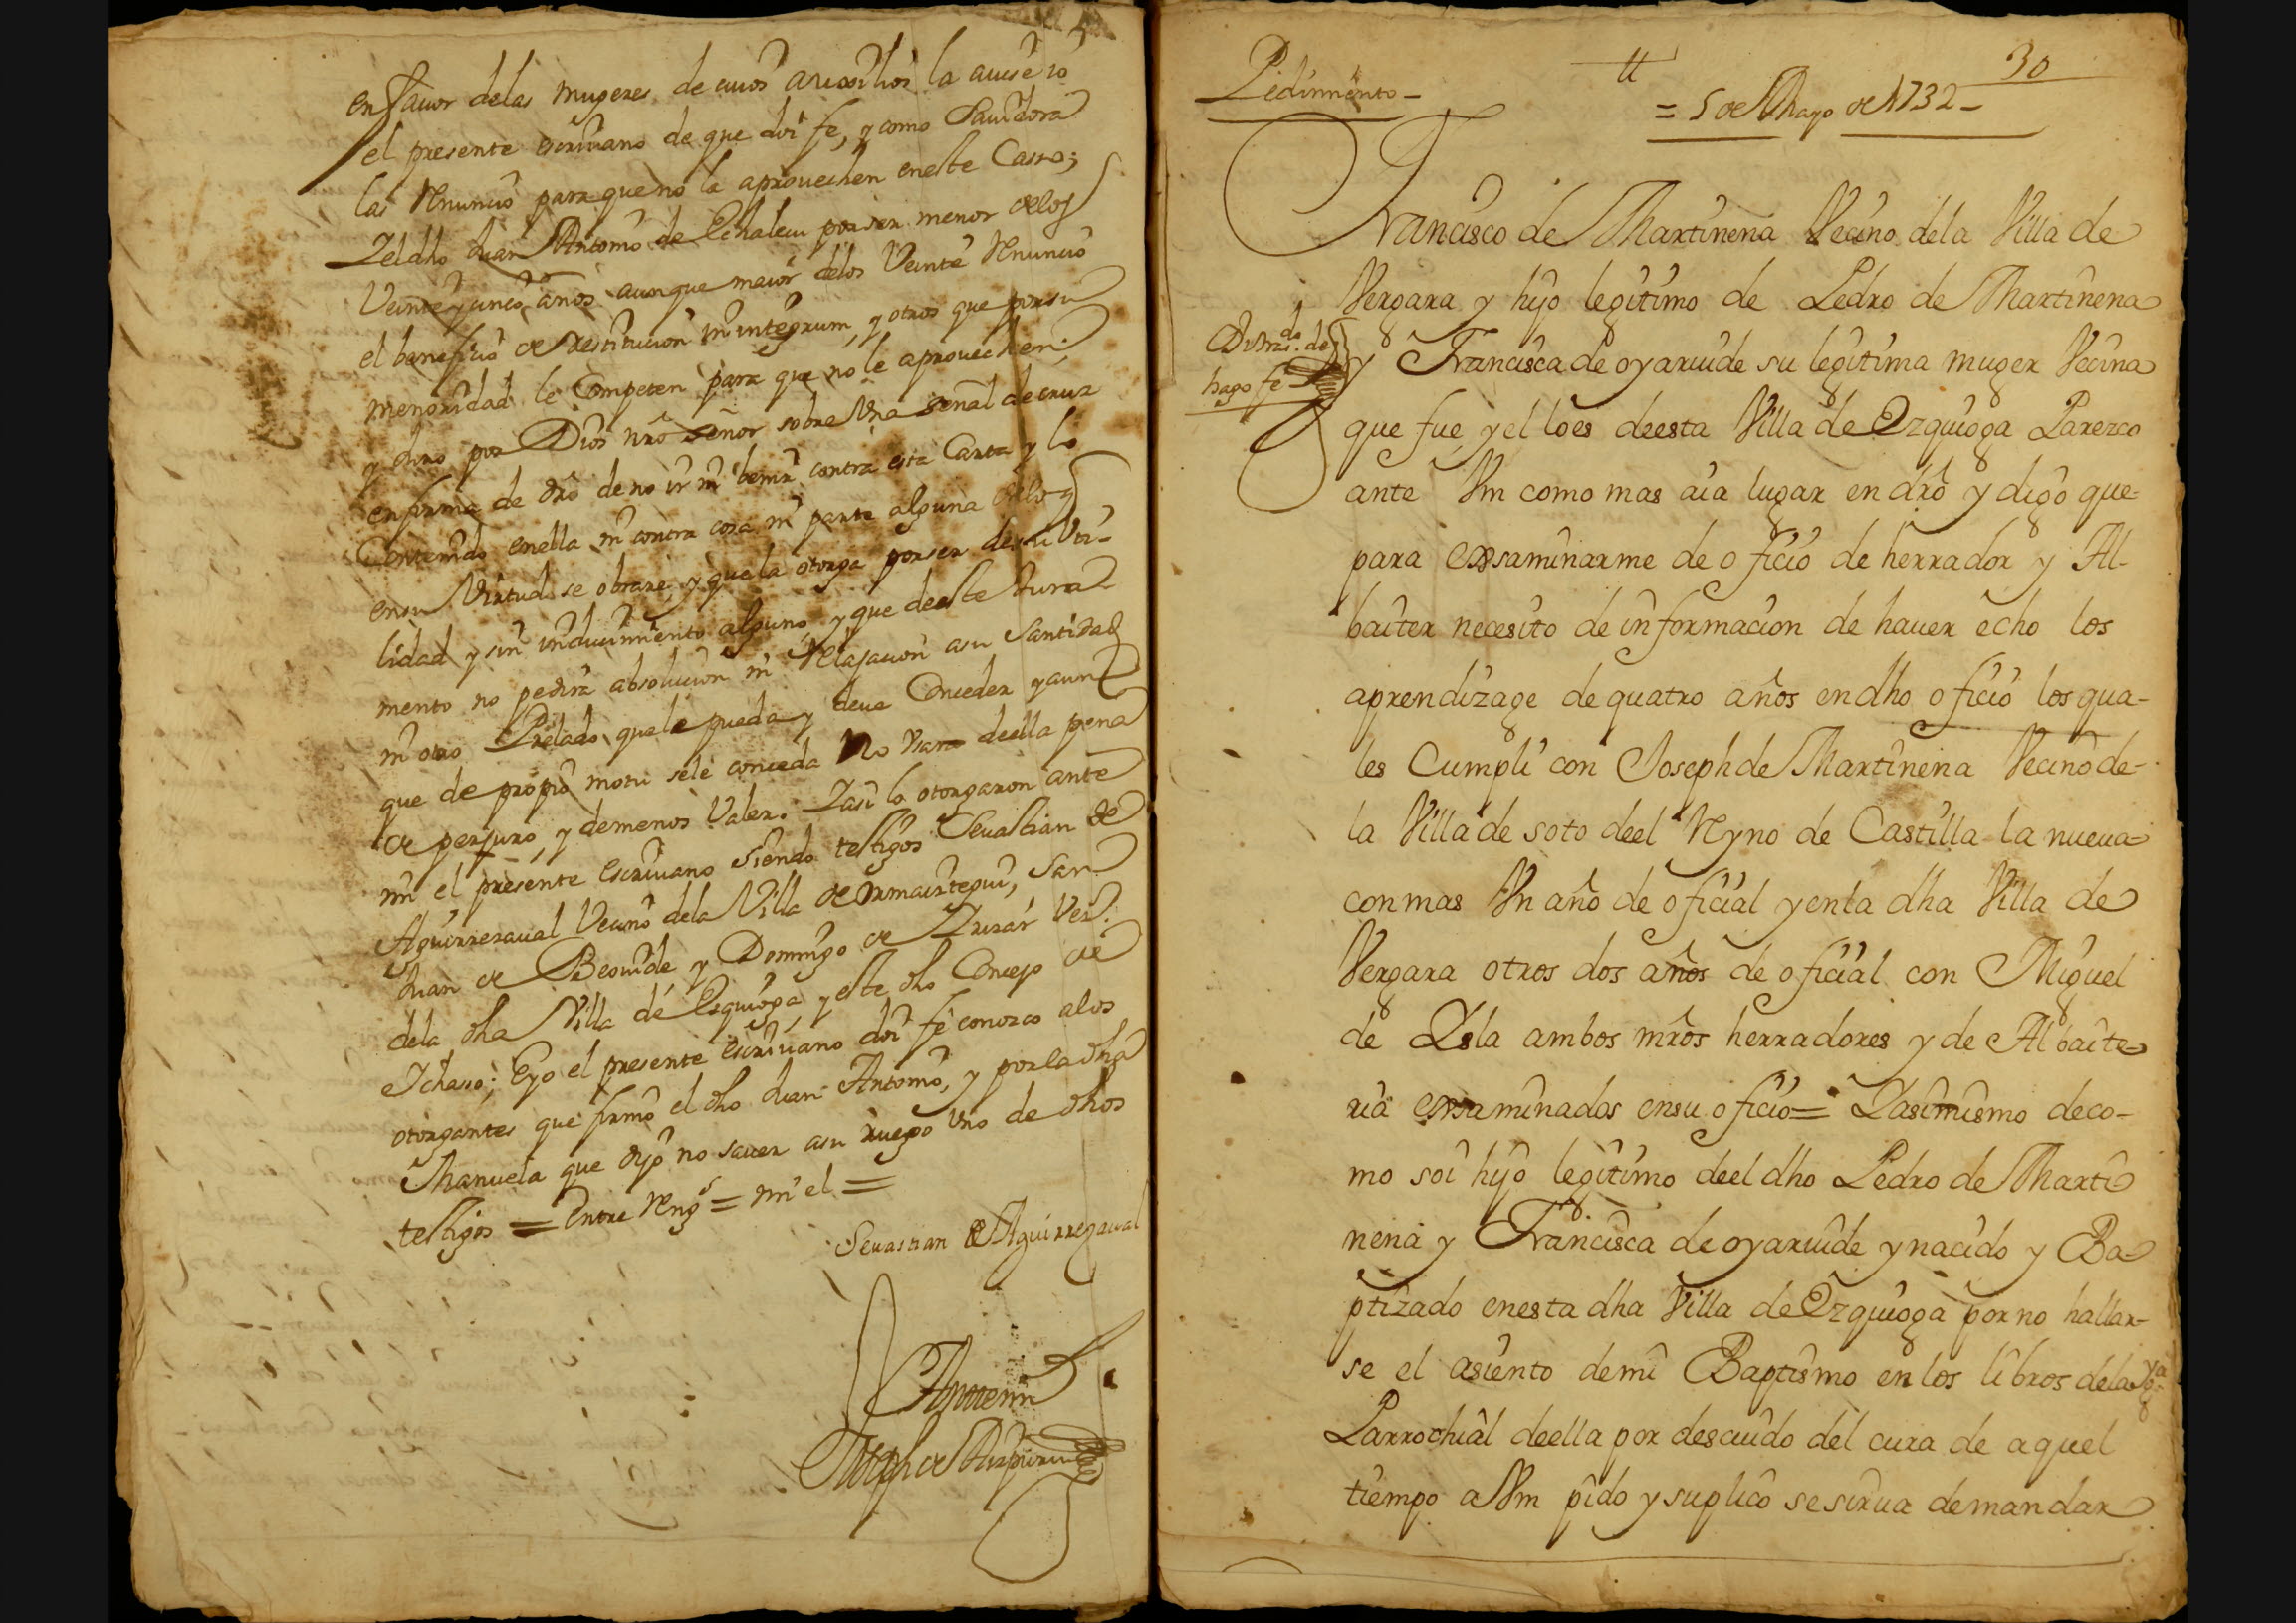 en favor delas mugeres de cuios auxilios la avise io
el presente escrivano de que doi fe, y como Savidora
las Renuncio para que no la aprovechen eneste Casso;
Y el dho Juan Antonio de Echalecu por ser menor delos
Veinte y cinco años aunque maior delos Veinte Renuncio
el beneficio de restitucion in integrum, y otros que por su
menoridad le Competen para que no le aprovechen;
y Juro por Dios nro señor sobre Una señal de cruz
en forma de dro de no ir ni benir contra esta Carta y lo
Contenido enella ni contra cosa ni parte alguna delo q
en su Virtud se obrare y que la otorga por ser de su Uti-
lidad y sin inducimiento alguno y que deeste Jura-
mento no pedira absolucion ni Relajacion asu Santidad
ni otro Prelado que le pueda y deva Conceder y aun
que de propio motu sele conceda No Usara deella pena
de perjuro, y demenos Valer. Y asi lo otorgaron ante
mi el presente escrivano siendo testigos Sevastian de
Aguirrezaval Vecino dela Villa de Ormaiztegui, San
Juan de Beovide y Domingo de Vez.
dela dha Villa de Ezquioga, y este dho Concejo de
Ichaso; E yo el presente escrivano doi fe conozco alos
otorgantes que firmo el dho Juan Antonio, y por la dha
Manuela que dijo no saver asu ruego Uno de dhos
testigos = Entre Rengs = mi el =
Sevastian de Aguirrezaval
Ante mi
Joseph de
Pedimento - tt 30
= 5 de Mayo de 1732 -
Francisco de Martinena Vecino dela Villa de
Vergara y hijo legitimo de Pedro de Martinena
y Francisca de oyarvide su legitima muger Vecina
de
hago fe
que fue, y el lo es deesta Villa de Ezquioga Parezco
ante Vm como mas aia lugar en dro y digo que
para exsaminarme de oficio de herrador y Al-
baiter necesito de informacion de haver echo los
aprendizage de quatro años en dho oficio los qua-
les Cumpli con Joseph de Martinena Vecino de-
la Villa de soto deel Reyno de Castilla la nueva
con mas Un año de oficial y en la dha Villa de
Vergara otros dos años de oficial con Miguel
de Isla ambos mros herradores y de Albaite-
ria exsaminados en su oficio = Y asimismo de co-
mo soi hijo legitimo deel dho Pedro de Marti
nena y Francisca de oyarvide y nacido y Ba-
ptizado en esta dha Villa de Ezquioga por no hallar-
se el asiento de mi Baptismo en los libros dela Yga
Parrochial deella por descuido del cura de aquel
tiempo a Vm pido y suplico se sirva de mandar